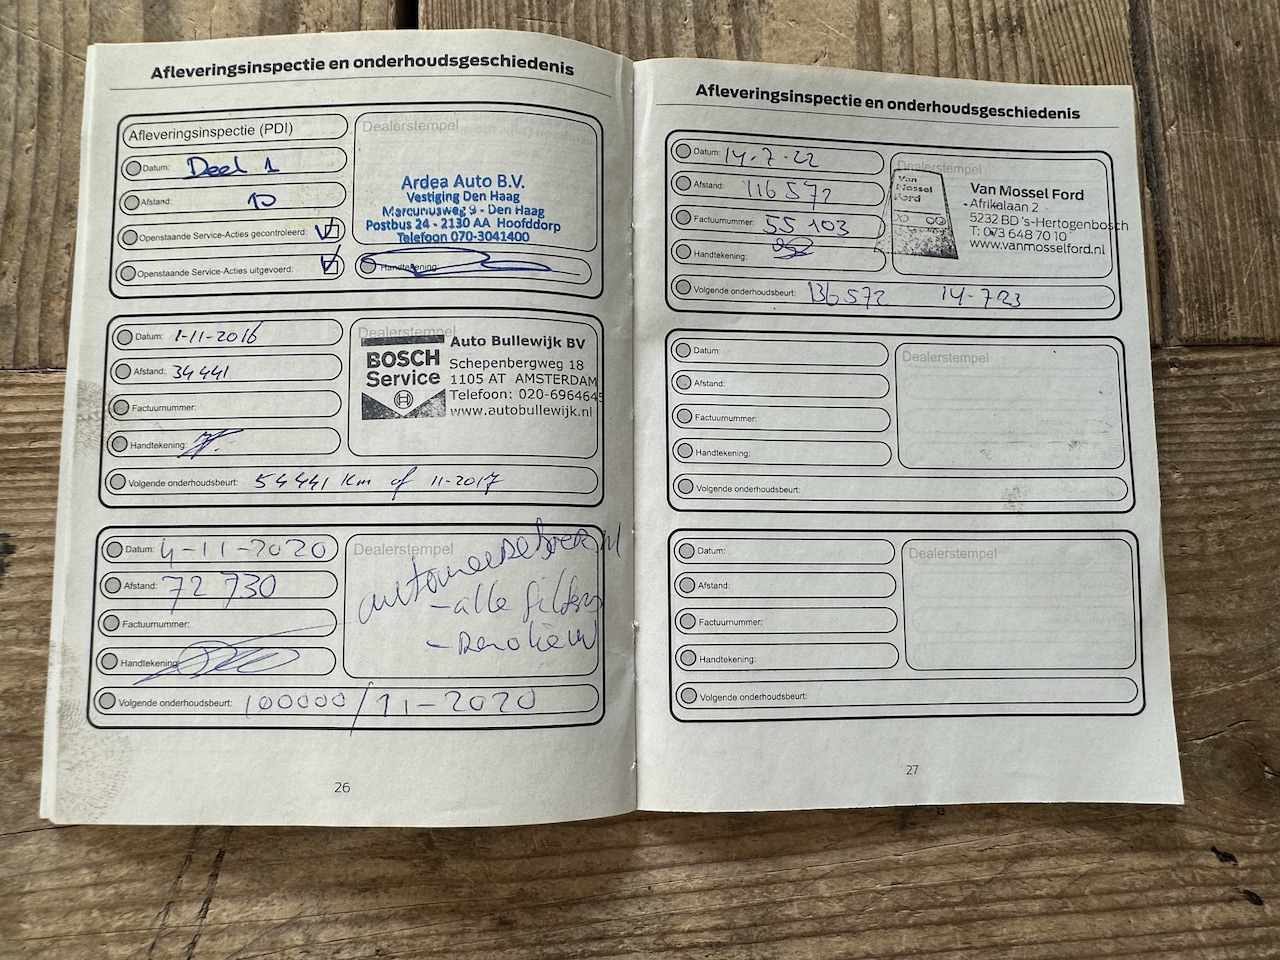 Afleveringsinspectie en onderhoudsgeschiedenis
Afleveringsinspectie (PDI)
Datum: Deel 1
Afstand: 10
Openstaande Service-Acties gecontroleerd:
Openstaande Service-Acties uitgevoerd:
Dealerstempel
Ardea Auto B.V.
Vestiging Den Haag
Marcuriusweg 9 - Den Haag
Postbus 24 - 2130 AA Hoofddorp
Telefoon 070-3041400
Handtekening:
Datum: 1-11-2016
Afstand: 34441
Factuurnummer:
Handtekening:
Dealerstempel
BOSCH
Service
Auto Bullewijk BV
Schepenbergweg 18
1105 AT AMSTERDAM
Telefoon: 020-696464
www.autobullewijk.nl
Volgende onderhoudsbeurt: 54441 km of 11-2017
Datum: 4-11-2020
Afstand: 72730
Factuurnummer:
Handtekening
Dealerstempel
- alle filters
Volgende onderhoudsbeurt: 100000/11-2020
26
Afleveringsinspectie en onderhoudsgeschiedenis
Datum: 14-7-22
Afstand: 116572
Factuurnummer: 55103
Handtekening:
Dealerstempel
Van
Mossel
Ford
Van Mossel Ford
Afrikalaan 2
5232 BD 's-Hertogenbosch
T: 073 648 70 10
www.vanmosselford.nl
Volgende onderhoudsbeurt: 136572 14-723
Datum:
Afstand:
Factuurnummer:
Handtekening:
Dealerstempel
Volgende onderhoudsbeurt:
Datum:
Afstand:
Factuurnummer:
Handtekening:
Dealerstempel
Volgende onderhoudsbeurt:
27